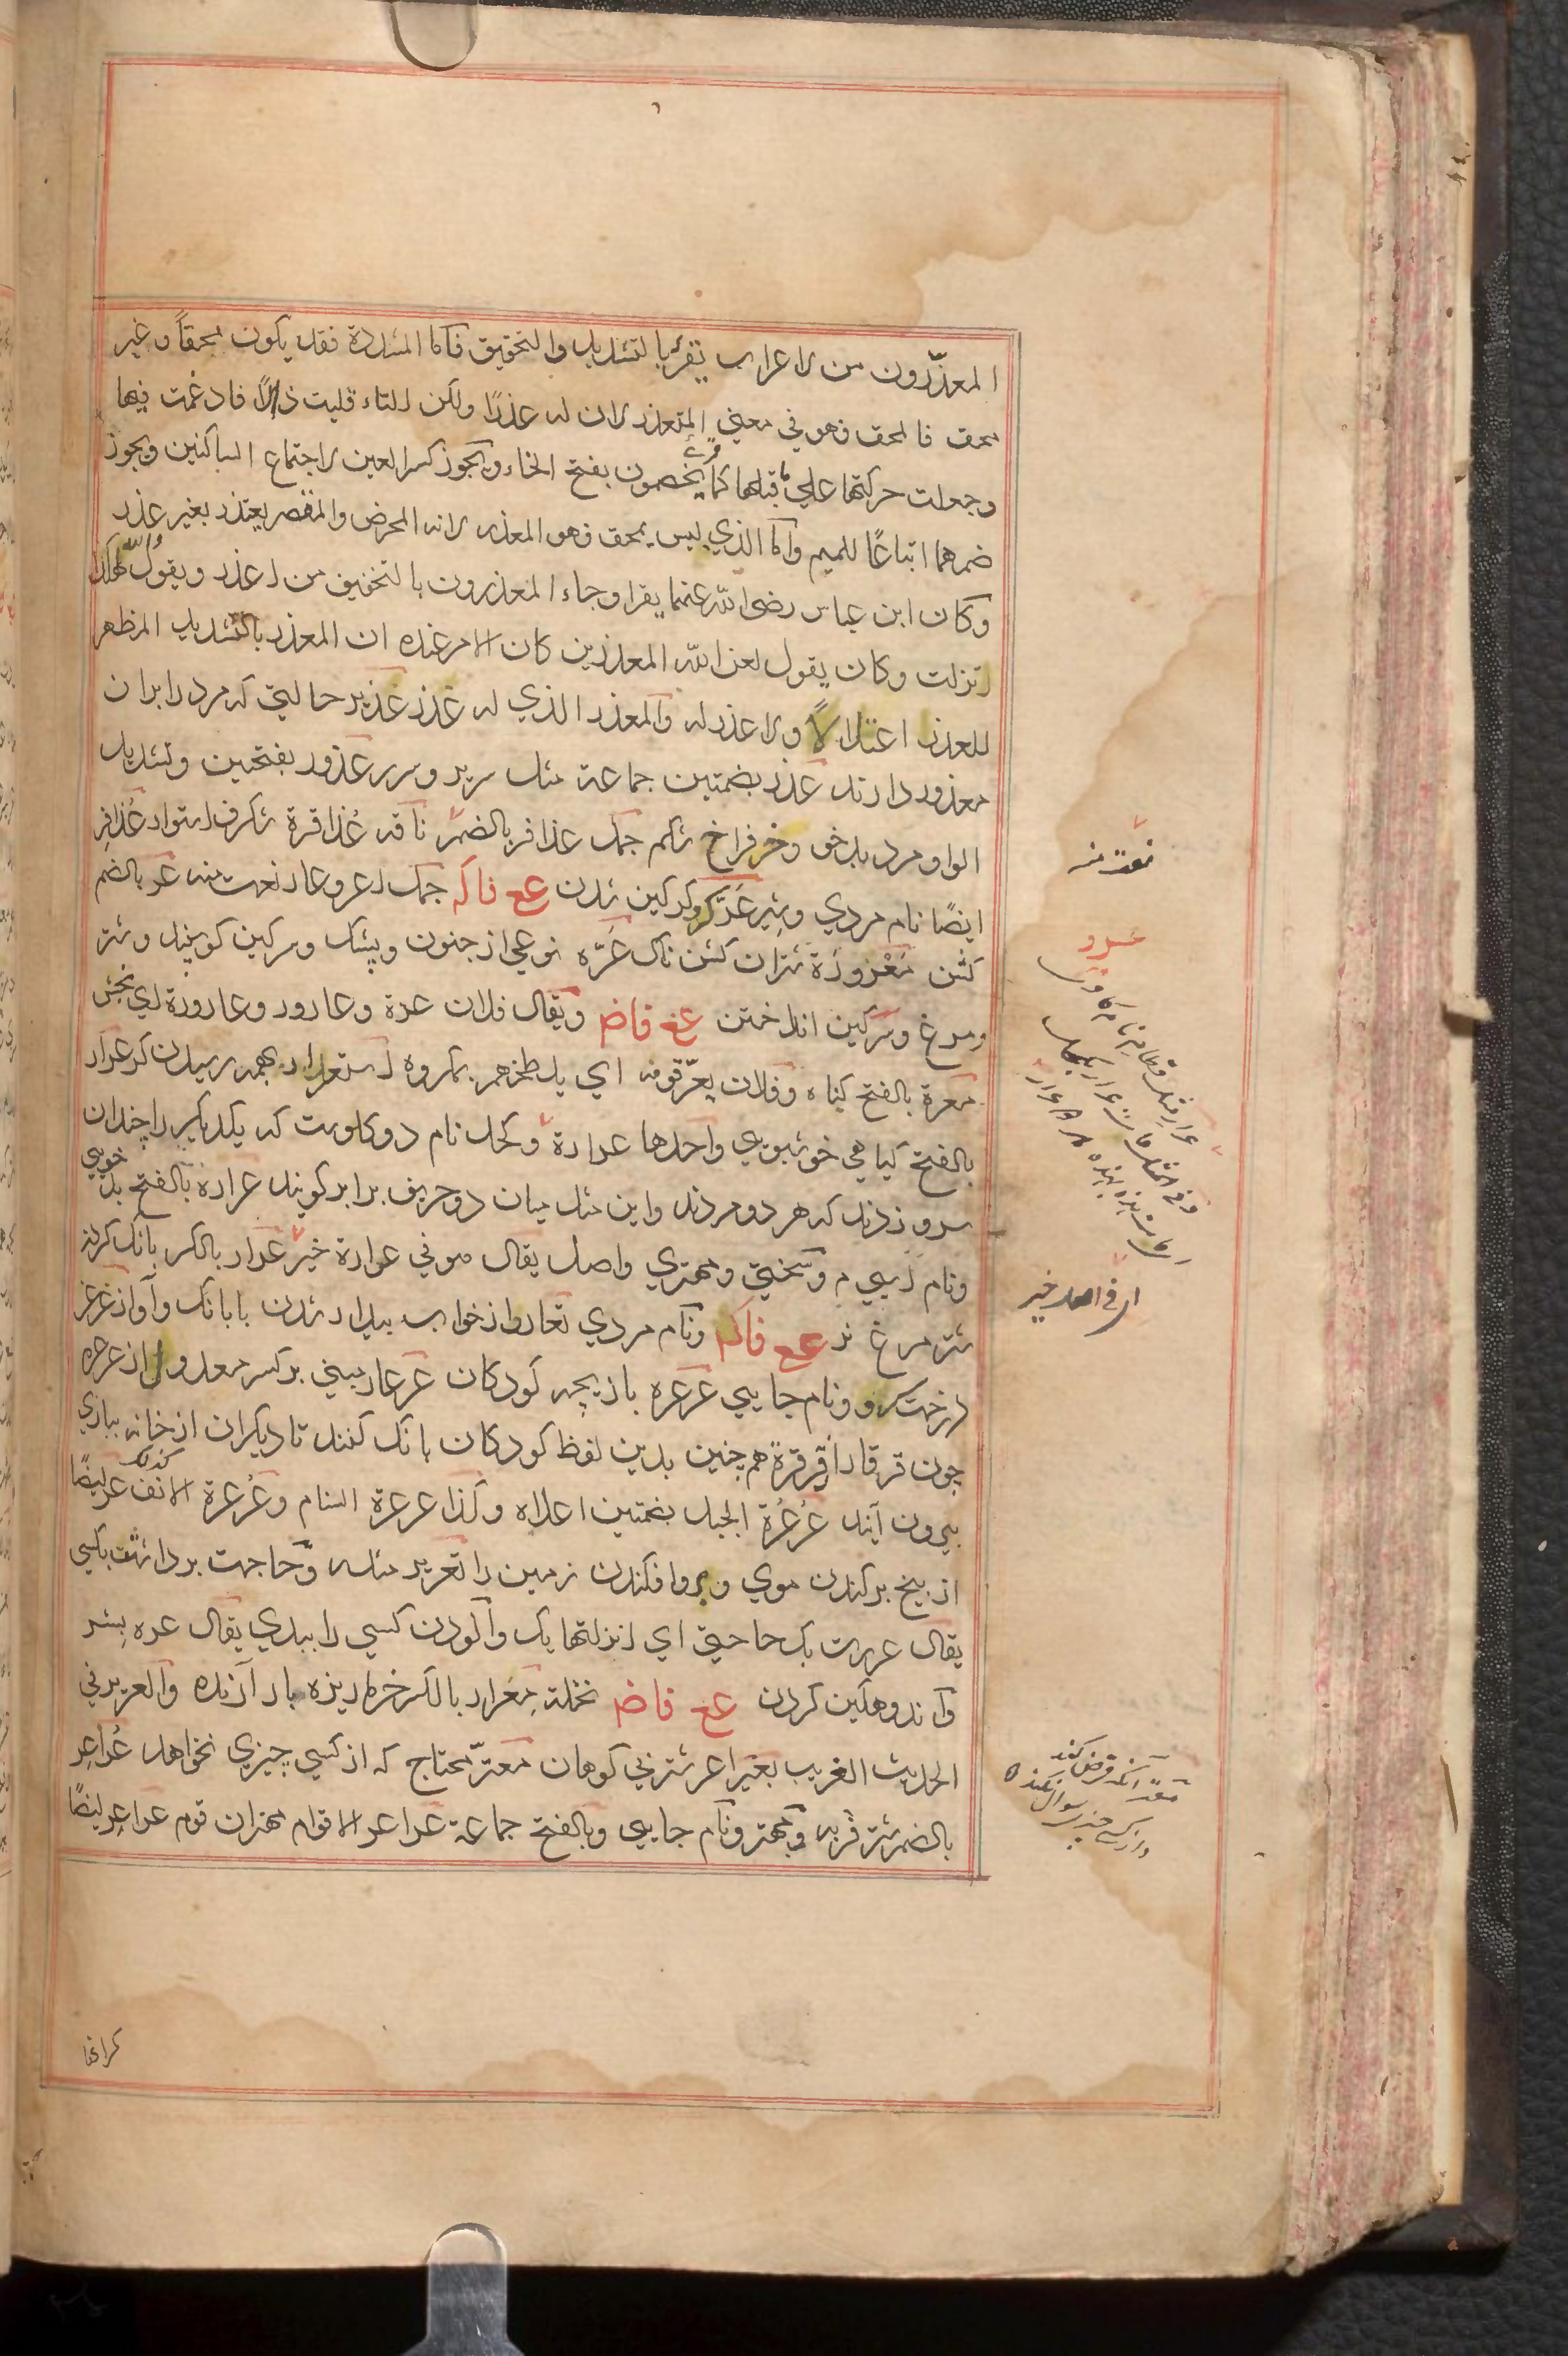 المعذّرون من الاعراب يقرء بالتشديد والتخفيق فاما المشددة فقد يكون محقاً وغير
محق فالمحق فهو في معنى المتعذر لان له عذرًا ولكن التاء قلبت ذالاً فادغمت فيها
وجعلت حركتها علي ما قبلها كما قرئ يخصمون بفتح الخاء ويجوز كسر العين لاجتماع الساكنين ويجوز
ضمهما اتباعًا للميم واما الذي ليس بمحق فهو المعذر لانه الممرض والمقصر يعتذر بغير عذر
وكان ابن عباس رضى الله عنهما يقرا وجاء المعذرون بالتخفيف من اعذر ويقول والله لهكذا
انزلت وكان يقول لعن الله المعذرين كان الامر عنده ان المعذر بالتشديد المظهر
للعذر اعتلالاً ولا عذر له والمعذر الذي له عذر عذير حالتي كه مرد را بران
معذور دارند عذر بضمتين جماعة مثل سرير وسرر عذور بفتحتين وتشديد
الواو مرد بدخو وخر فراخ شكم جمل عذافر بالضم ناقه عذافرة شكرف استوار عذافر
ايضًا نام مردي وشير عرّ كر وكركين شدن عع فاكه جمل اعر وعار نعت منه عر بالضم
كثن معرورة شتران كشن ناك عرّه نوعي از جنون وپشك وسركين كوسپند وشتر
ومرغ وسركين انداختن عع فاضر ويقال فلان عرة وعارور وعارورة اي نجس
معرة بالفتح كناه وفلان يعرّ قومه اي يلطخهم بمكروه استعرار بهمه رسيدن كر عرار
بالفتح كياهي خوشبوي واحدها عرارة وكحل نام دو كاوست كه يكديكر را چندان
سرو زدند كه هر دو مردند واين مثل ميان دو حريف برابر كويند عرارة بالفتح بد خويي
ونام اسپي م وسختي ومهتري واصل يقال هو في عرارة خير عرار بالكسر بانك كردن
شتر مرغ نر عع فاكه ونام مردي تعار از خواب بيدار شدن با بانك وآواز عرعر
درخت سرو ونام جايي عرعره بازيچه كودكان عرعار مبني بر كسر معدول از عرعره
چون قرقار از قرقرة هم چنين بدين لفظ كودكان بانك كنند تا ديكران از خانه ببازي
بيرون آيند عُرعُرة الجبل بضمتين اعلاه وكذا عرعرة السنام وعُرعرة الانف عر ايضًا
از بيخ بركندن موي وبر وا فكندن زمين را تعرير مثله وحاجت برداشتن بكسي
يقال عررت بك حاجتي اي انزلتها بك وآلودن كسي را ببدي يقال عره بشر
واندوهكين كردن عع فاضر نخلة معرار بالكسر خرما ريزه بار آرنده والعرير في
الحديث الغريب بعير اعر شتر بي كوهان معترّ محتاج كه از كسي چيزي نخواهد عُراعر
بالضم شتر فربه ومهتر ونام جايي وبالفتح جماعة عراعر الاقوام مهتران قوم عراعر ايضًا
نعت منه
اي في اصل خير
معتر آنكه قرض كند